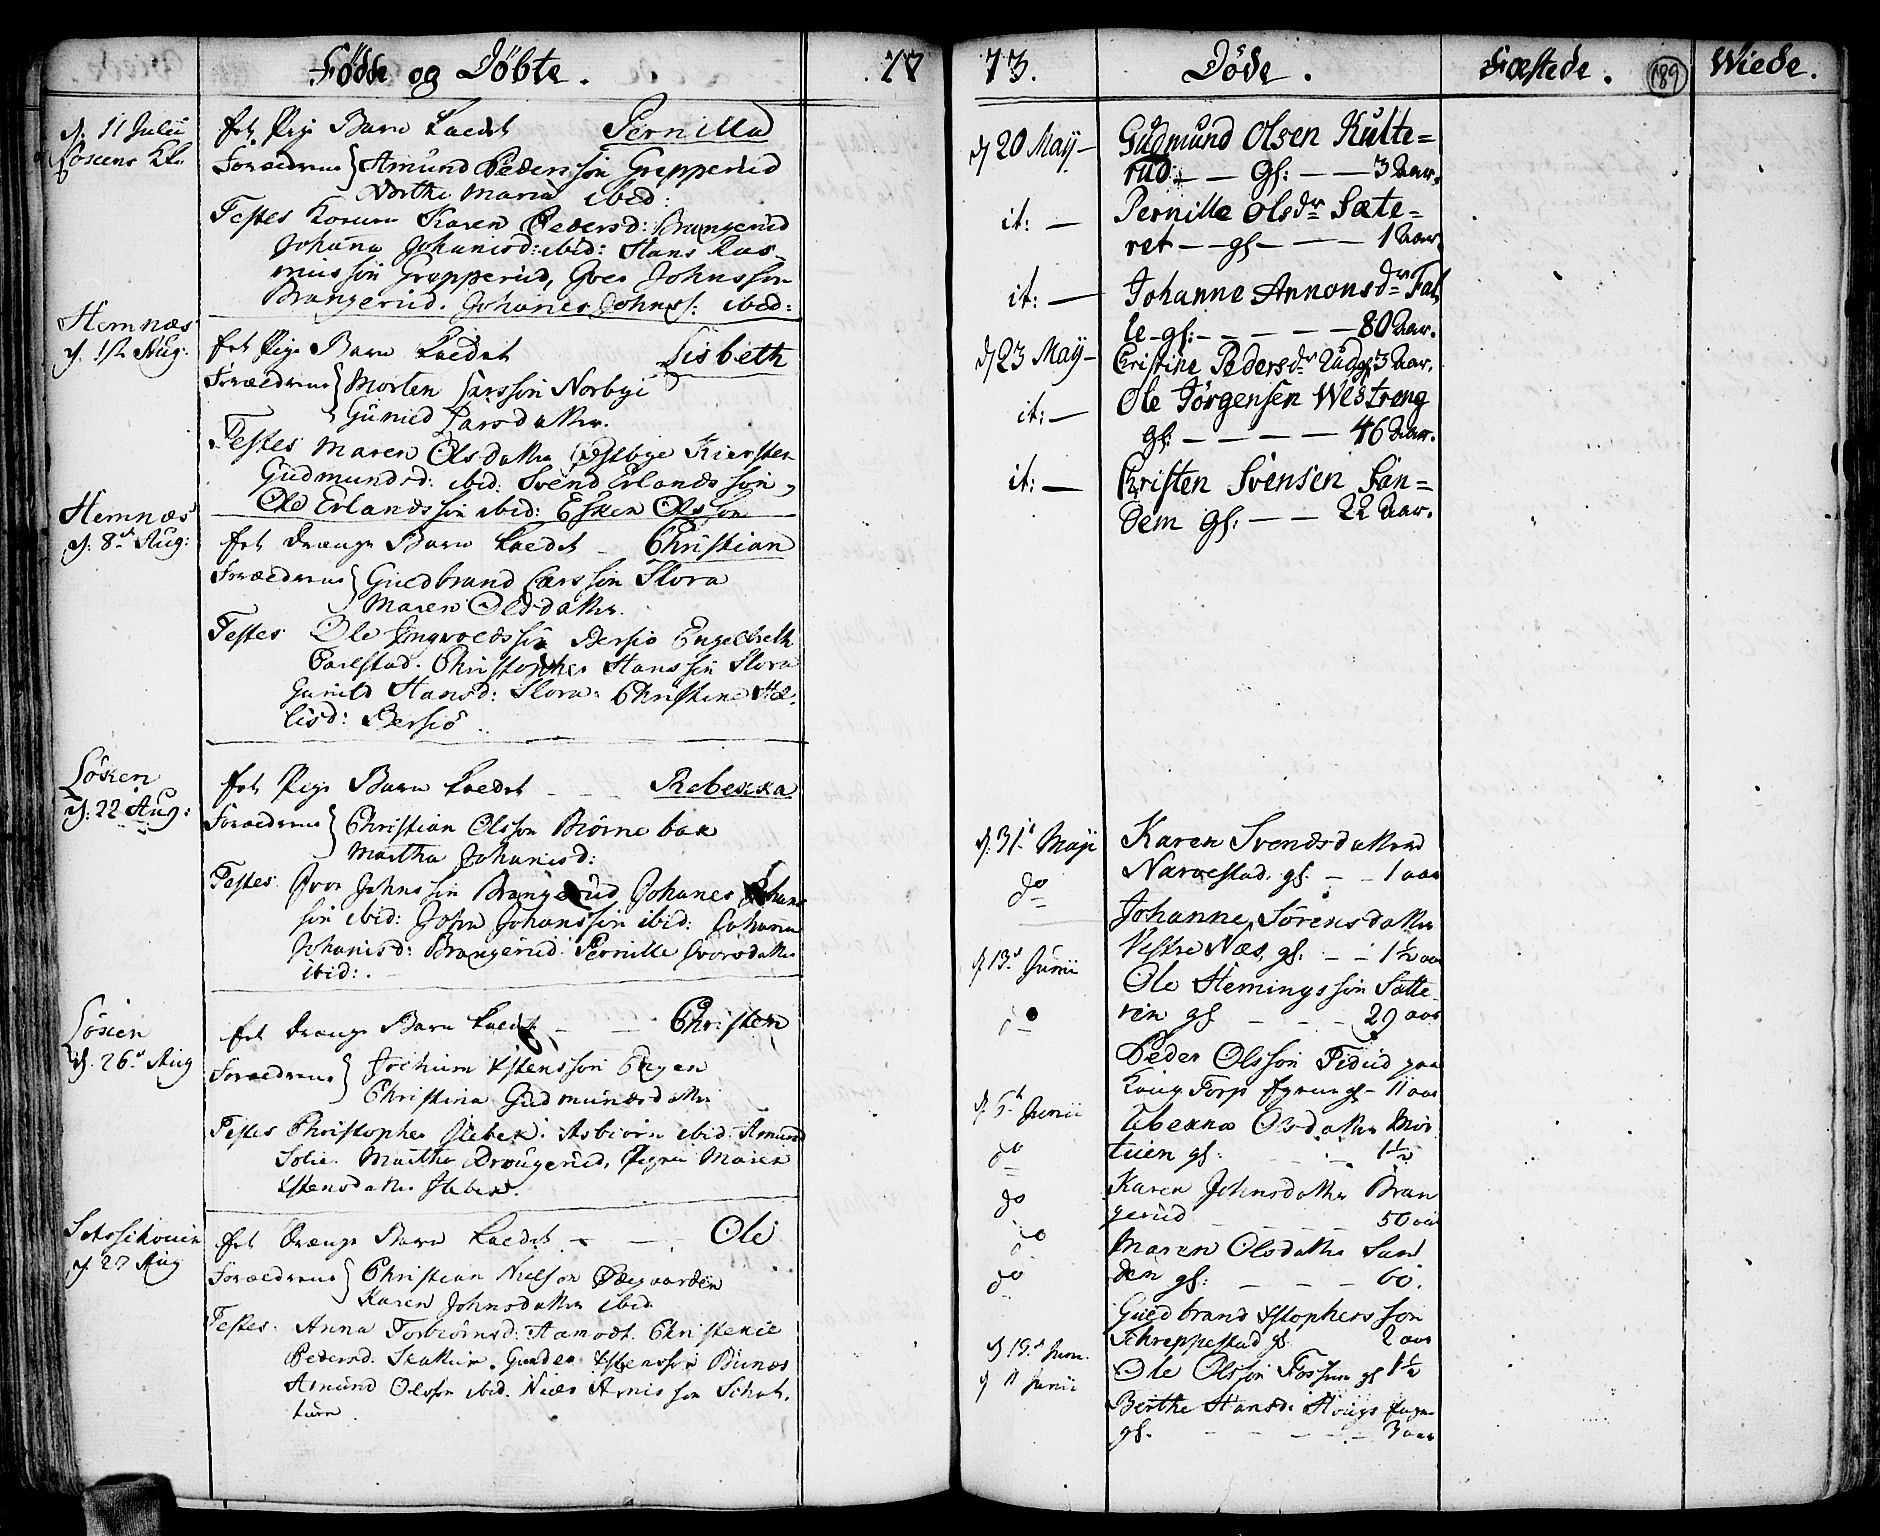 Födde og Döbte.
1773.
d. 11 Julii
Løsens K.
et Pige Barn kaldet Pernilla
Foræderne Amund Pedersön Grepperud
Dorthe Maria ibid:
Testes Karen Pedersd: Brangerud
Johana Johanisd: ibid: Hans Ras-
mussön Grepperud, Iver Johnssön
Brangerud. Johanes Johns: ibid:
Hemnæs
d. 1 Aug:
et Pige Barn kaldet Lisbeth
Forældrene Morten Larssön Norbye
Gunild Larsdatter.
Testes Maren Olsdatter Østbye Kiersten
Gudmundsd: ibid: Svend Erlandssön,
Ole Erlandssön ibid: Esken Olssön
Hemnæs
d: 8de Aug:
et Drænge Barn kaldet - Christian
Forældrene Guldbrand Larssön Flora
Maren Olsdatter.
Testes Ole Ingvoldssön Bersiö Engelbreth
Tarlstad. Christopher Hanssön Flora
Gunild Hansd: Flora: Christine
lisd: Bersiö
Løsen
d. 22 Aug:
et Pige Barn kaldet - Rebekka
Forældrene Christian Olssön Biörnebak
Martha Johanisd:
Testes Iver Johnssön Brangerud Johanes Johans
sön ibid: John Johanssön ibid: Johana
Johanisd: Brangerud. Pernille Iversdatter
ibid:
Løsen
d. 26 Aug
et Drænge Barn kaldet - Christen
Forældrene Jochum Estenssön
Christina Gudmundsdatter
Testes Christopher Asbiörn ibid. Amund
Solie. Martha Drougerud, Pigen Maren
Estensdatter
d. 27 Aug
et Drænge Barn kaldet - Ole
Forældrene Christian Nielson Prægaarden
Karen Johnsdatter ibid
Testes. Anna Torbiörnsd. Aamodt. Christence
Pedersd. Gunder Estenssön
Amund Olssön ibid. Niels Arnissön
Döde.
Fæstede.
189
Wiede.
d 20 May - Gudmund Olsen Kulte=
rud - - Gl: - - 3 Aar.
it: - Pernille Olsdr Sæte=
ret - - gl - - - 1 Aar.
it: - Johanne Annonsdr Fal
le - gl: - - - - 80 Aar.
d 23 May - Christine Pedersdr 3 Aar.
it: - Ole Jörgensen Westreng
gl: - - - - 46 Aar.
it: - Christen Svensen San=
dem gl: - - 22 Aar.
d. 31 Maji Karen Svendsdatter
Narvestad. gl. - - 1 aar
do Johanne Sörensdatter
Vestre Næs, gl: - - 1½ aar
d 13 Junii Ole Hemingssön Sætte-
ren gl - - - 29 aar
do Peder Olsson paa
gl - 11 aar
d. 5 Junii Olsdatter
gl: - - 1½
do Karen Johnsdatter Bran
gerud - - - 50 aar
do Maren Olsdatter Sun
den gl: - - - 60.
do Guldbrand Estophersson
Schreppestad gl 2 aar
d 19 Jun. Ole Olssön Fossum gl 1½
d 11 Junii Birthe Hansd:
gl. - - - - 3 aar